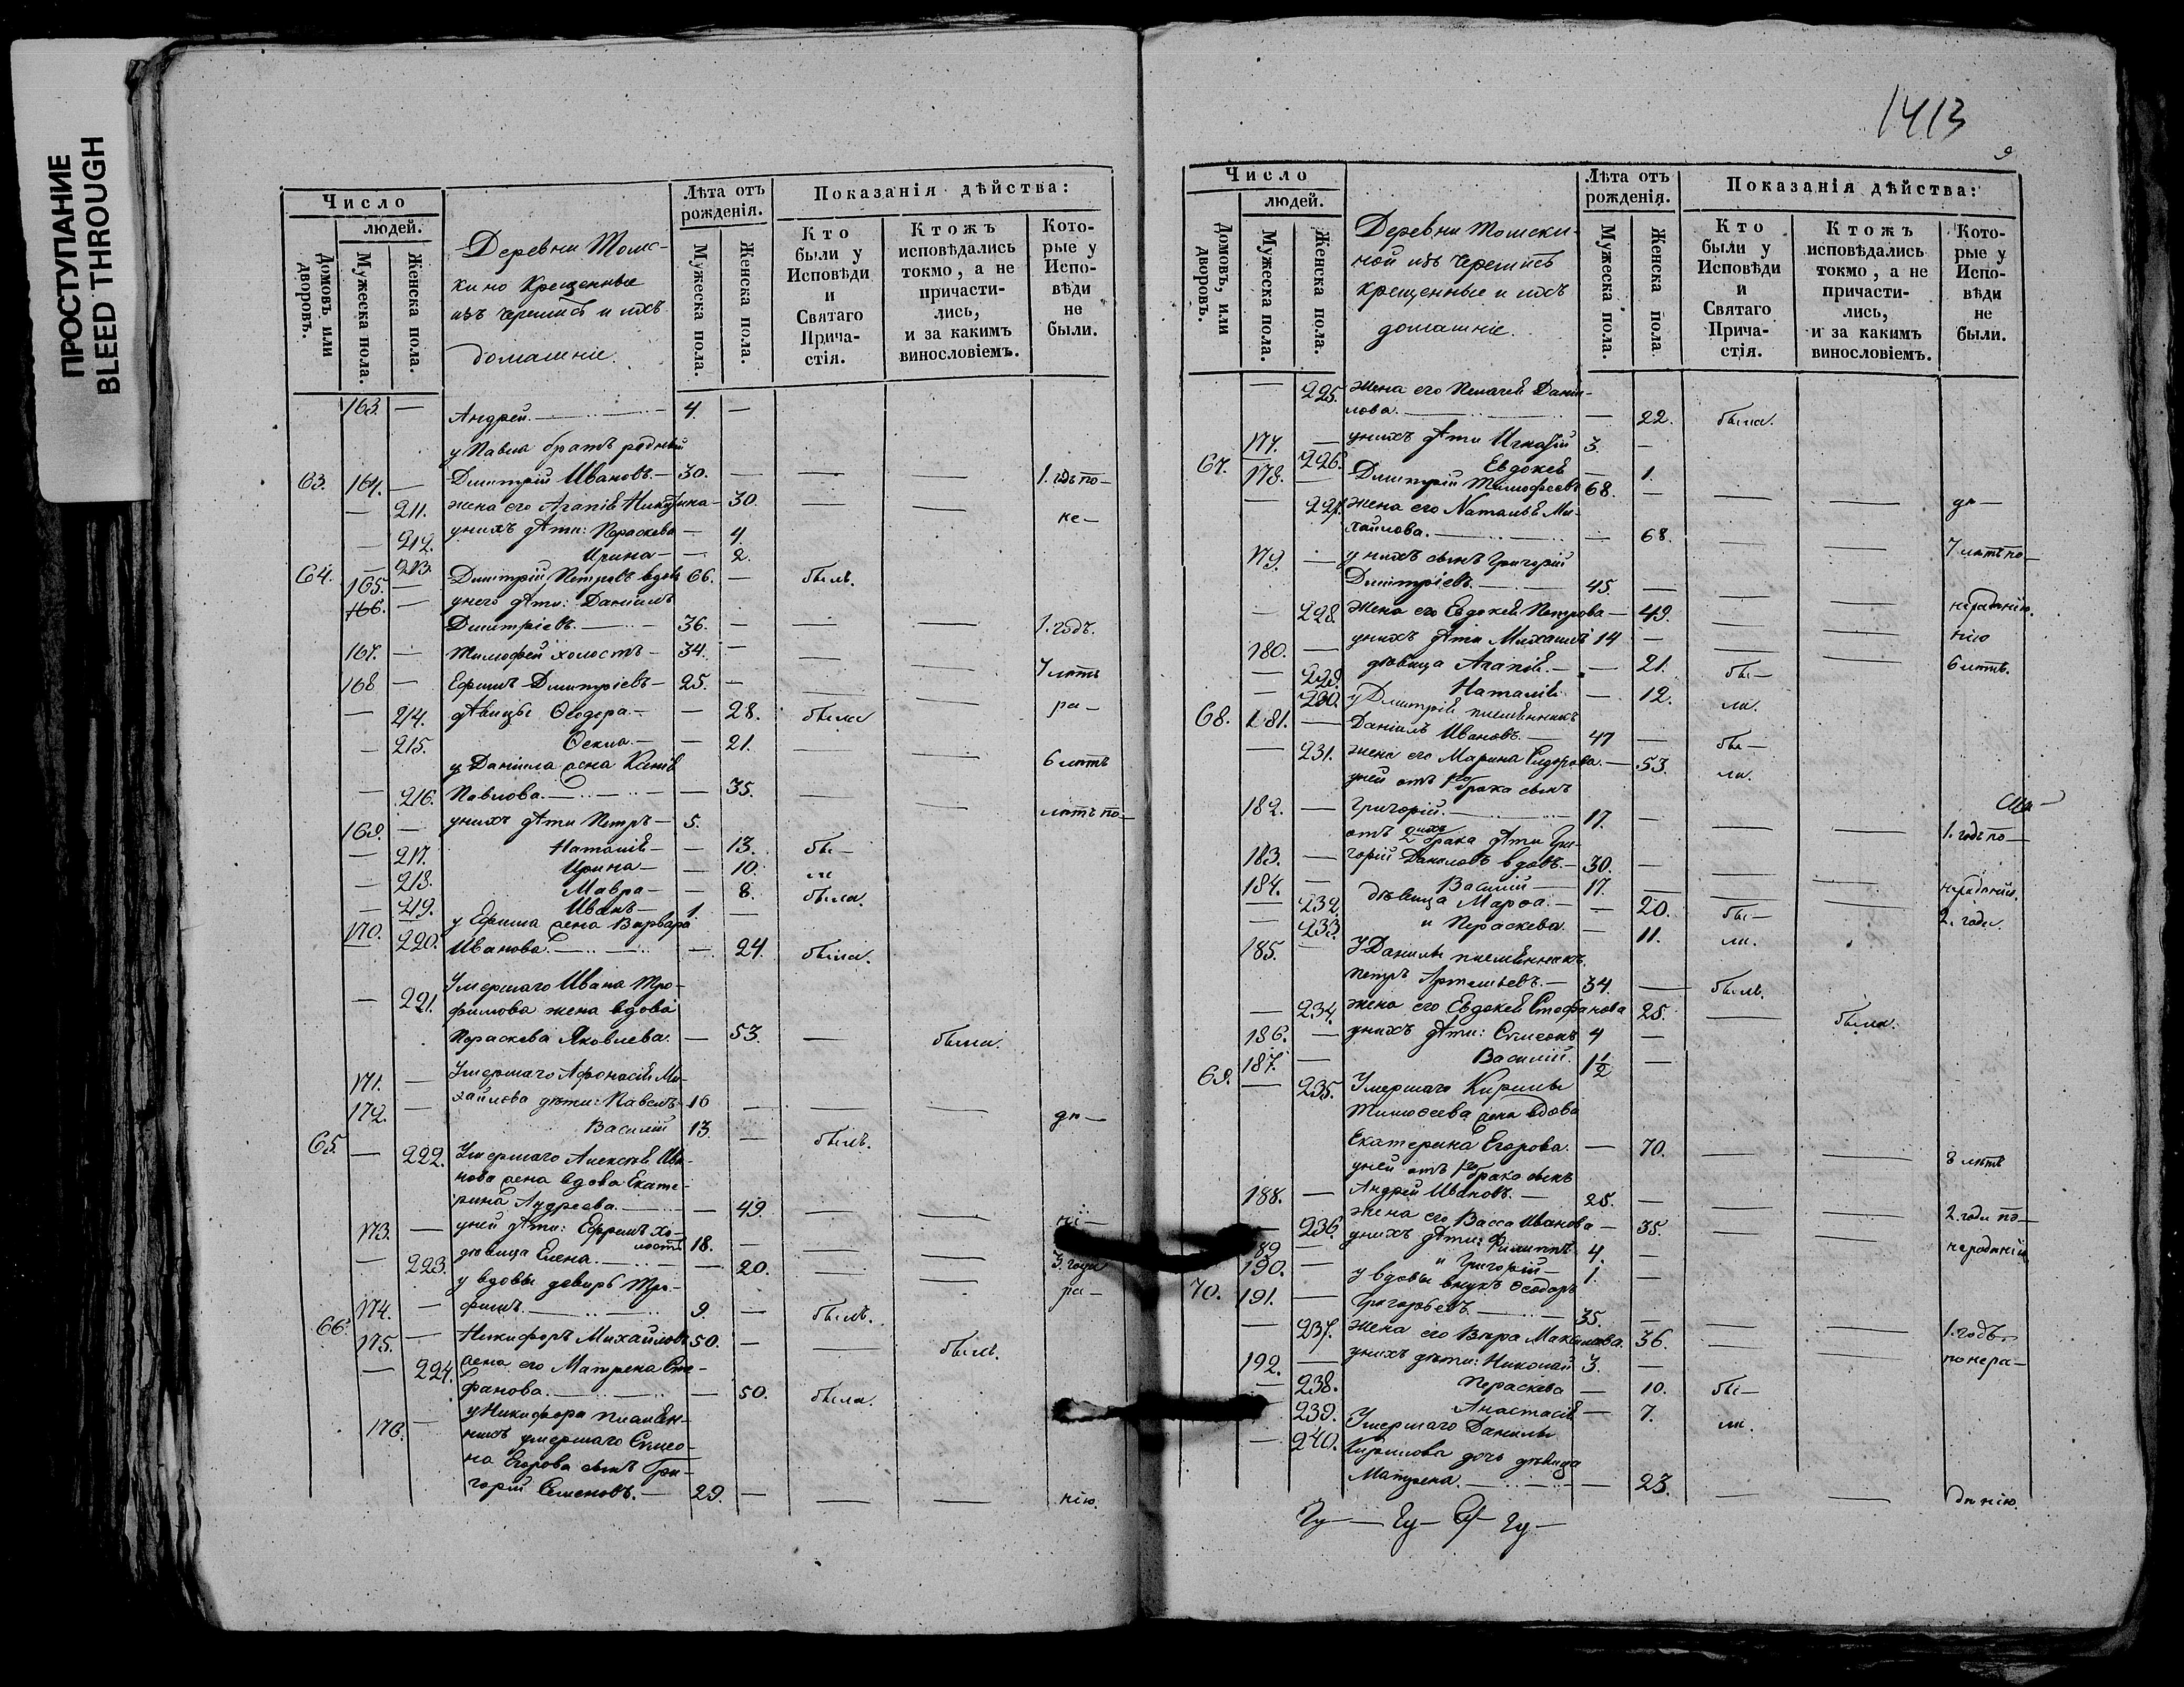 ПРОСТУПАНИЕ
BLEED THROUGH
Число
людей.
Домовъ или дворовъ.
Мужеска пола.
Женска пола.
Деревни Томс-
кино Крещенные
изъ черемисъ и ихъ
домашніе.
Лѣта отъ рожденія.
Мужеска пола.
Женска пола.
Показанія дѣйства:
Кто были у Исповѣди и Святаго Прича-стія.
Ктожъ исповѣдались токмо, а не причасти-лись, и за какимъ винословіемъ.
Кото-рые у Испо-вѣди не были.
163. — Андрей. — 4. —
у Павла братъ родный
63. 164. — Димитрій Ивановъ. — 30. — — — 1. годъ по —
— 211. жена его Агапія Никитина — 30. — — не —
— 212. у нихъ дѣти: Параскева — 4.
— 213. Ирина — — 2.
64. 165. — Димитрій Петровъ вдовъ 66. — былъ.
166. — у него дѣти: Даніилъ
Димитріевъ. — 36. — — — 1. годъ.
167. — Тимофей холостъ — 34. — — — 7 лѣтъ
168 — Ефимъ Димитріевъ — 25. — — — ра —
— 214. дѣвицы Ѳеодора. — — 28. была
— 215. Ѳекла. — — 21. — — 6 лѣтъ
у Даніила жена Ксенія
— 216. Павлова. — — 35. — — лѣтъ по —
169. — у нихъ дѣти Петръ — 5.
— 217. Наталія — — 13. бы —
— 218. Ирина — — 10. ли
— 219. Мавра — — 8. была.
170. Иванъ — 1. —
220. у Ефима жена Варвара
Иванова. — — 24. была.
— 221. Умершаго Ивана Тро-
фимова жена вдова
Параскева Яковлева. — 53. — была.
171. — Умершаго Афонасія Ми-
хайлова дѣти: Павелъ — 16 — — — дѣ —
172. — Василій 13. — былъ.
65. — 222. Умершаго Алексія Ива-
нова жена вдова Екате-
рина Андреева. — — 49. — — ні —
173. — у ней дѣти: Ефремъ хо-
лостъ 18. — — — 3. года
223. дѣвица Елена. — — 20. — — ра —
у вдовы деверь Тро-
174. — фимъ. — 9. — былъ.
66. 175. — Никифоръ Михайловъ 50. — — былъ.
— 224. жена его Матрена Сте-
фанова. — — 50. была.
у Никифора племян-
176. — никъ умершаго Симео-
на Егорова сынъ Гри-
горій Семеновъ. — 29. — — — нію.
1413
9
Число
людей.
Домовъ, или дворовъ.
Мужеска пола.
Женска пола.
Деревни Томски-
ной изъ черемисъ
крещенные и ихъ
домашніе.
Лѣта отъ рожденія.
Мужеска пола.
Женска пола
Показанія дѣйства:
Кто были у Исповѣди и Святаго Прича-стія.
Ктожъ исповѣдались токмо, а не причасти-лись, и за какимъ винословіемъ.
Кото-рые у Испо-вѣди не были.
— 225. жена его Пелагея Дани-
лова. — — 22. была.
177. — у нихъ дѣти Игнатій 3. —
226. Евдокея — 1.
67. 178. — Димитрій Тимофеевъ 68. — — — дѣ —
— 227. жена его Наталья Ми-
хайлова. — — 68. — — 7 лѣтъ по —
179. — у нихъ сынъ Григорій
Димитріевъ. — 45. — — — нерадѣнію.
— 228. Жена его Евдокея Петрова — 49. — — нію
180. — у нихъ дѣти Михаилъ 14 — — — 6 лѣтъ.
— 229. дѣвица Агапія. — — 21. бы —
— 230. Наталія. — 12. ли.
у Димитрія племянникъ
68. 181. — Даніилъ Ивановъ. — 47 — бы —
— 231. жена его Марина Сидорова. — 53. ли.
у ней отъ 1го брака сынъ
182. — Григорій. — 17. — — — 1. годъ по —
отъ 2 ихъ брака дѣти Гри-
183. — горій Даниловъ вдовъ. — 30. — — — нерадѣнію.
184. — Василій — 17. — — — 2. года.
— 232. дѣвица Марѳа. — — 20. бы —
— 233. и Параскева — 11. ли.
185. — У Данилы племянникъ
Петръ Артемьевъ. — 34. — былъ.
— 234. жена его Евдокея Стефанова 25. — была.
186. — у нихъ дѣти: Симеонъ 4 —
187. — Василій. 1 1/2 —
69. — 235. Умершаго Кирилы
Тимоѳеева жена вдова
Екатерина Егорова. — 70. — — 8 лѣтъ
у ней отъ 1го брака сынъ
188. — Андрей Ивановъ. — 25. — — — 2. года по —
— 236. жена его Васса Иванова — 35. — — нерадѣнію
189 — у нихъ дѣти: Филиппъ 4. —
190. — и Григорій — 1. —
у вдовы внукъ Ѳеодоръ
70. 191. — Григорьевъ. — 35. — — — 1. годъ
— 237. жена его Вѣра Максимова. 36. — — по нера —
192. — у нихъ дѣти: Николай 3. —
— 238. Параскева — 10. бы —
239. Анастасія — 7. ли.
— 240. Умершаго Данилы
Кирилова дочь дѣвица
Матрена. — — 23. — — дѣнію.